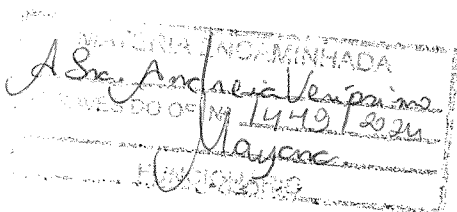 MATÉRIA ENCAMINHADA
A Sra. Andreia Veríssimo
ATRAVÉS DO OF. Nº 1449/2024
Mayana
FUNCIONÁRIO